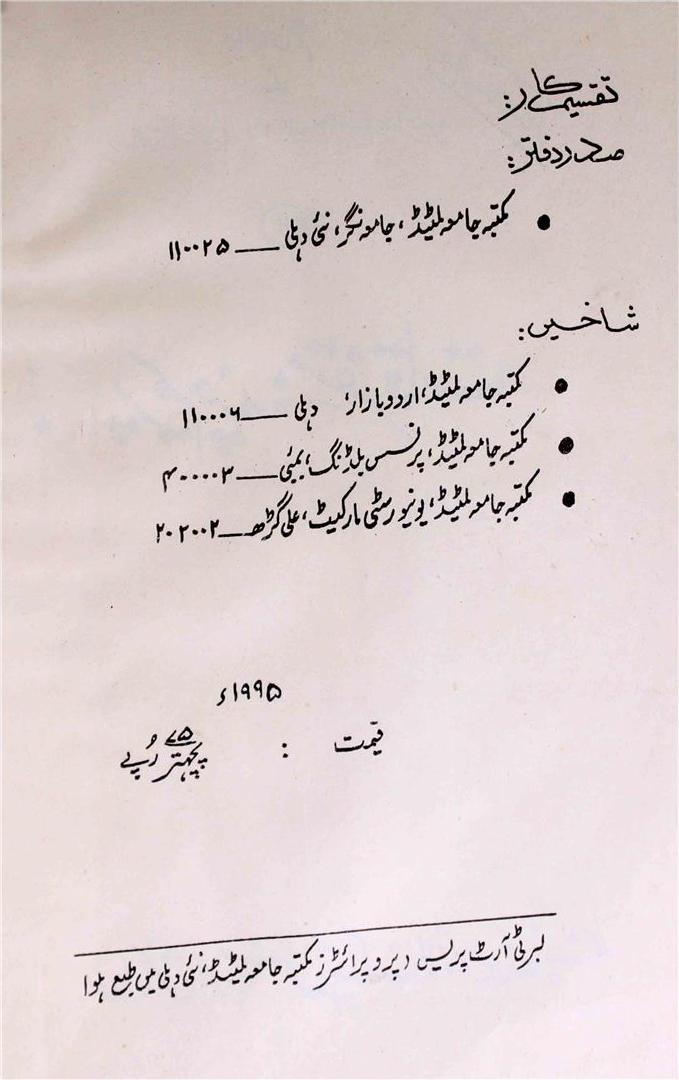 تقسیم کار:
صدر دفتر:
● مکتبہ جامعہ لمیٹڈ، جامعہ نگر، نئی دہلی ـــ ۱۱۰۰۲۵
شاخیں:
● مکتبہ جامعہ لمیٹڈ، اردو بازار، دہلی ـــ ۱۱۰۰۰۶
● مکتبہ جامعہ لمیٹڈ، پرنسس بلڈنگ، بمبئی ـــ ۴۰۰۰۰۳
● مکتبہ جامعہ لمیٹڈ، یونیورسٹی مارکیٹ، علی گڑھ ـــ ۲۰۲۰۰۲
۱۹۹۵ء
قیمت : ۷۵
پچھتر رُپے
لبرٹی آرٹ پریس (پروپرائٹرز مکتبہ جامعہ لمیٹڈ، نئی دہلی میں طبع ہوا